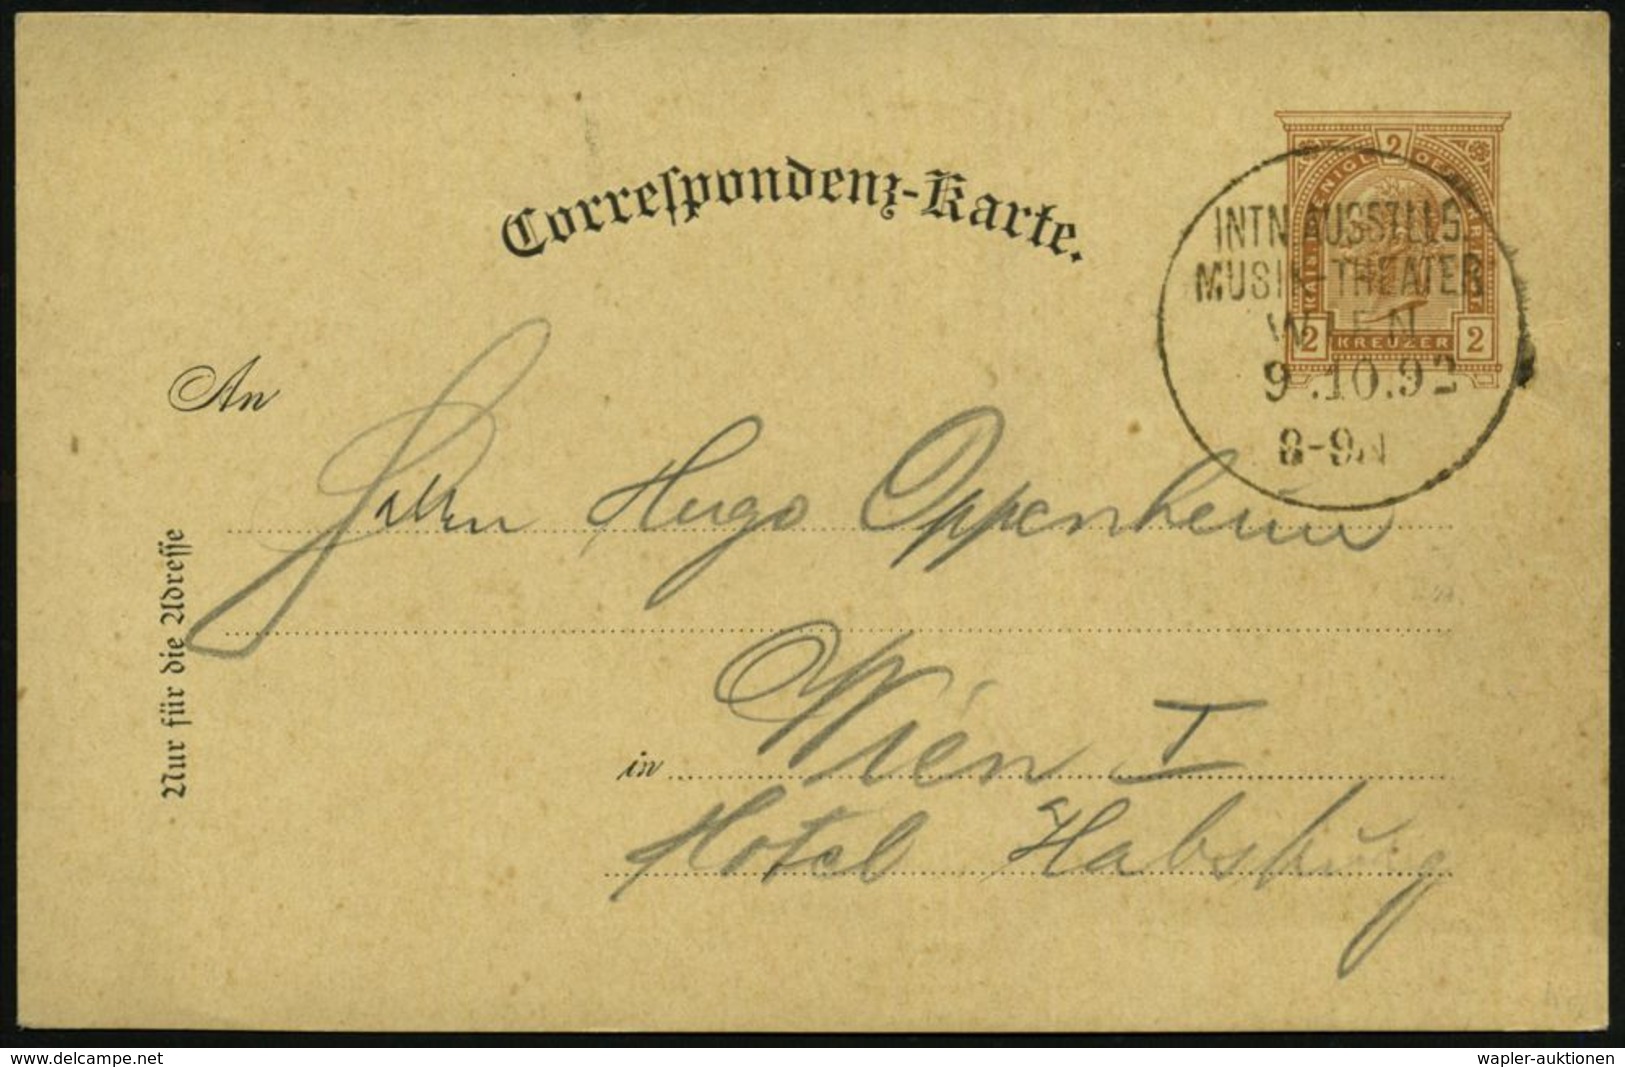 Correſpondenz-Karte.
KAIS. KOENIGL. OESTERR. POST
2
2 KREUZER 2
INTN AUSSTLLG.
MUSIK-THEATER
WIEN
9.10.92
8-9N
An
Herrn Hugo Oppenheim
Nur für die Adreſſe
in Wien I
Hotel Habsburg
www.delcampe.net
wapler-auktionen